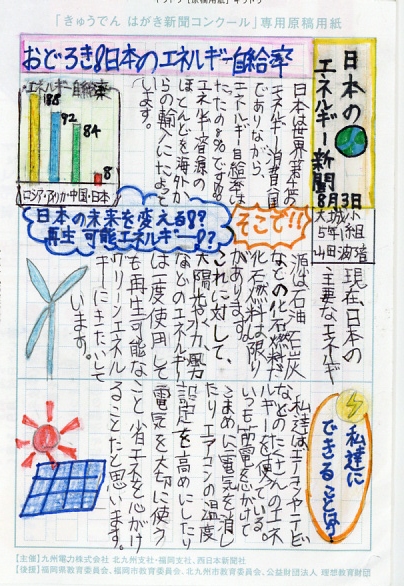 「きゅうでん はがき新聞コンクール」専用原稿用紙
日本の
エネルギー新聞
8月3日
大城小
5年1組
おどろき!!日本のエネルギー自給率
エネルギー自給率
188
92
84
8
ロシア・アメリカ・中国・日本
日本は世界第4位の
エネルギー消費国
でありながら、
エネルギー自給率は
たったの8%です!!
エネルギー資源の
ほとんどを海外か
らの輸入にたよって
います。
そこで!!
日本の未来を変える!?
再生可能エネルギー!?
現在、日本の
主要なエネルギー
源は石油、石炭
などの化石燃料
化石燃料は限り
があります。
これに対して、
太陽光や水力、風力
などのエネルギー
は一度使用して
も再生可能な
クリーンエネル
ギーにきたいして
います。
私達に
できることは?
私達はエアコンやテレビ
などたくさんのエネ
ルギーを使っている。
いつも節電を心がけて
こまめに電気を消し
たり、エアコンの温度
設定を高めにしたり
電気を大切に使う
こと、省エネを心がけ
ることだと思います。
【主催】九州電力株式会社 北九州支社・福岡支社、西日本新聞社
【後援】福岡県教育委員会、福岡市教育委員会、北九州市教育委員会、公益財団法人 理想教育財団